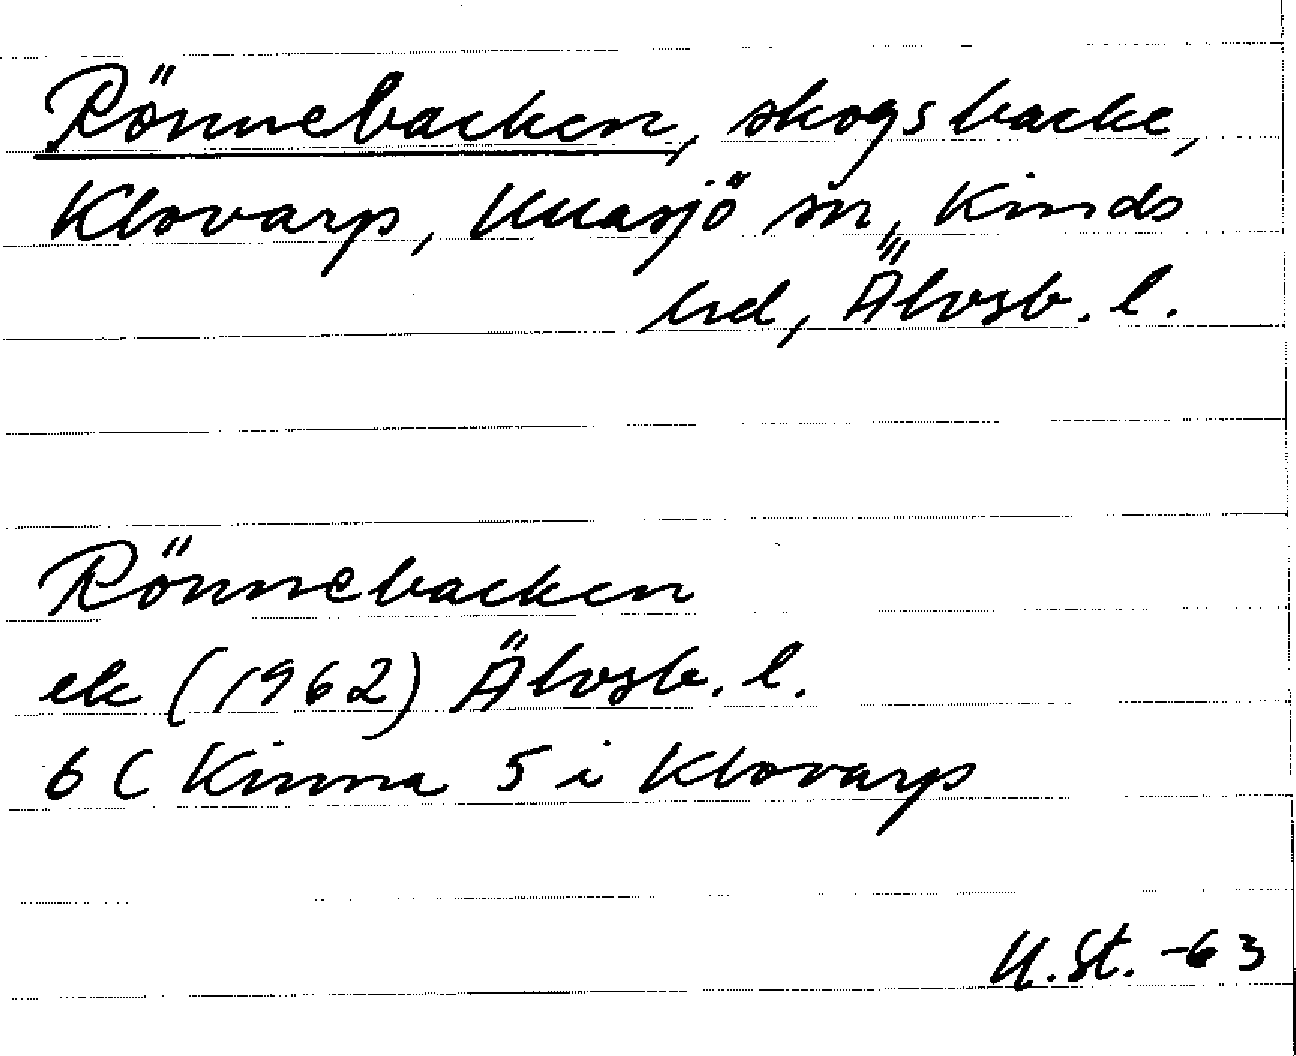 Rönnebacken, skogsbacke,
Klovarp, Ullasjö sn, Kinds
hd, Älvsb. l.
Rönnebacken
ek (1962) Älvsb. l.
6 C Kinna 5 i Klovarp
U.St. -63